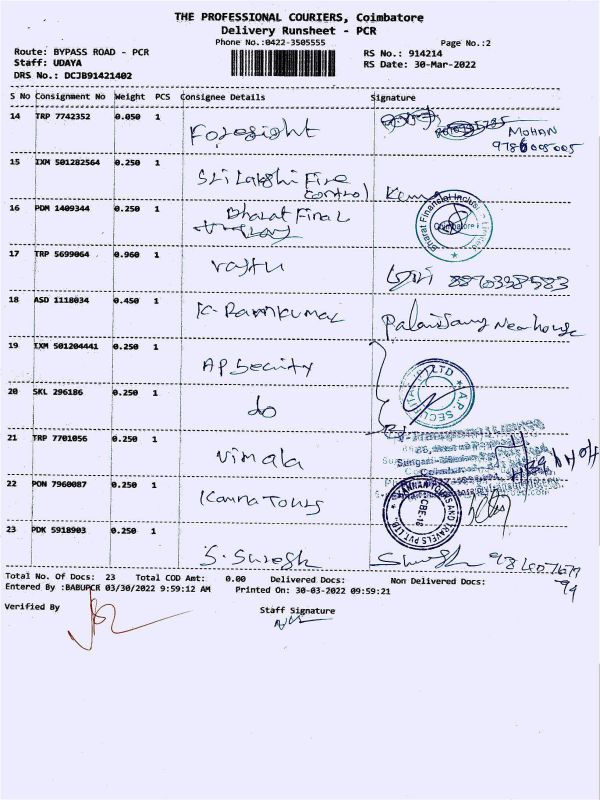 THE PROFESSIONAL COURIERS, Coimbatore
Delivery Runsheet - PCR
Phone No.:0422-3505555
Page No.:2
Route: BYPASS ROAD - PCR
RS No.: 914214
Staff: UDAYA
RS Date: 30-Mar-2022
DRS No.: DCJB91421402
S No Consignment No Weight PCS Consignee Details Signature
14 TRP 7742352 0.050 1 Foresight MOHAN
15 IXM 501282564 0.250 1 Sri Lakshi Fire
control
16 PDM 1409344 0.250 1 Bharat Final
Bharat Financial Inclusion Limited
Coimbatore
17 TRP 5699064 0.960 1
18 ASD 1118034 0.450 1 K. Ramkumar Palanisamy Near house
19 IXM 501204441 0.250 1 AP Security
A.P. SECURITAS LTD
20 SKL 296186 0.250 1 do
21 TRP 7701056 0.250 1 Vimala
22 PON 7960087 0.250 1 Kanna Tours
KANNAN TOURS AND TRAVELS PVT LTD
CBE-18
23 PDK 5918903 0.250 1 S. Suresh Suresh
Total No. Of Docs: 23 Total COD Amt: 0.00 Delivered Docs: Non Delivered Docs:
Entered By :BABUPCR 03/30/2022 9:59:12 AM Printed On: 30-03-2022 09:59:21
Verified By
Staff Signature